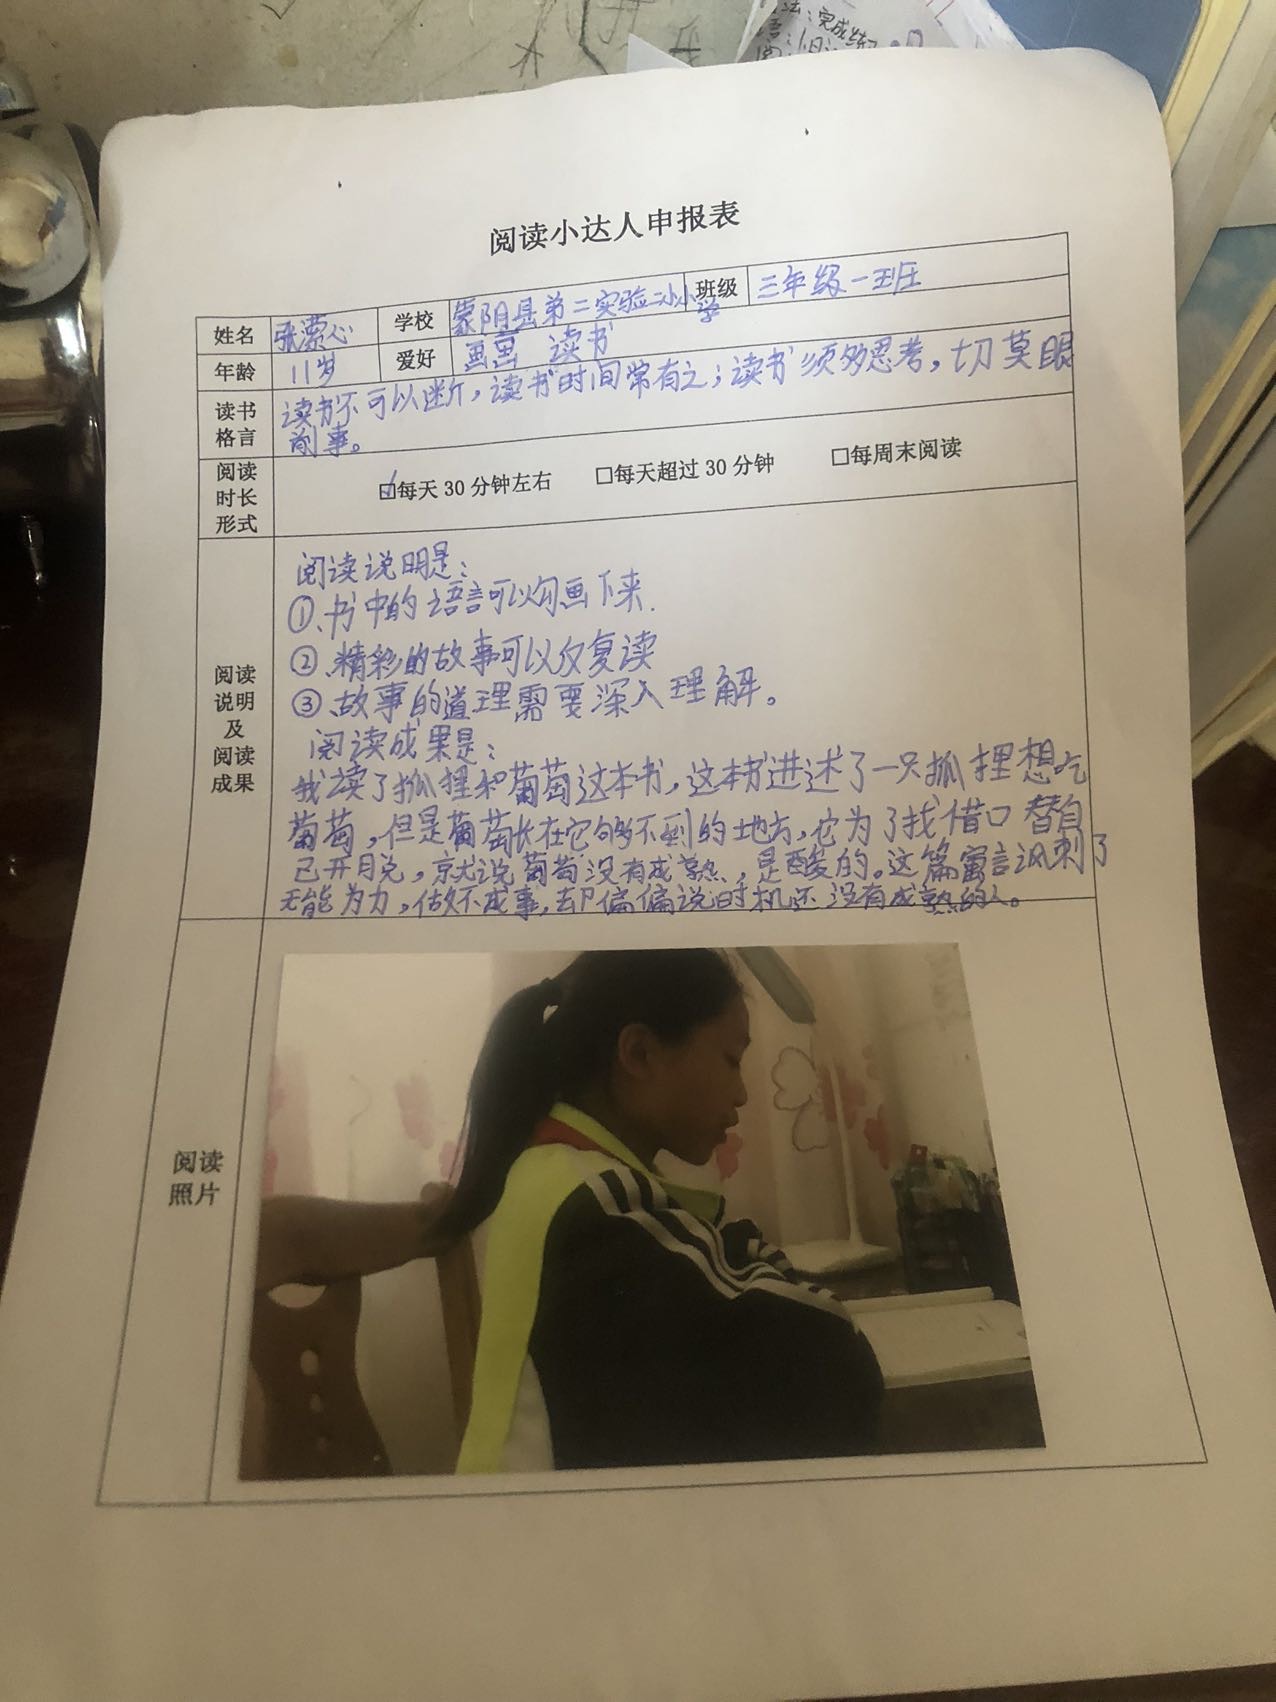 阅读小达人申报表
姓名 张潆心 学校 蒙阴县第二实验小小学 班级 三年级一班
年龄 11岁 爱好 画画 读书
读书格言 读书不可以断，读书时间常有之；读书须多思考，切莫眼
前事。
阅读时长形式 ☑每天30分钟左右 □每天超过30分钟 □每周末阅读
阅读说明及阅读成果
阅读说明是：
①、书中的语言可以勾画下来.
②、精彩的故事可以反复读
③、故事的道理需要深入理解。
阅读成果是：
我读了狐狸和葡萄这本书，这本书讲述了一只狐狸想吃
葡萄，但是葡萄长在它够不到的地方，它为了找借口替自
己开脱，就说葡萄没有成熟，是酸的。这篇寓言讽刺了
无能为力，做不成事，却偏偏说时机还没有成熟的人。
阅读照片
完成练